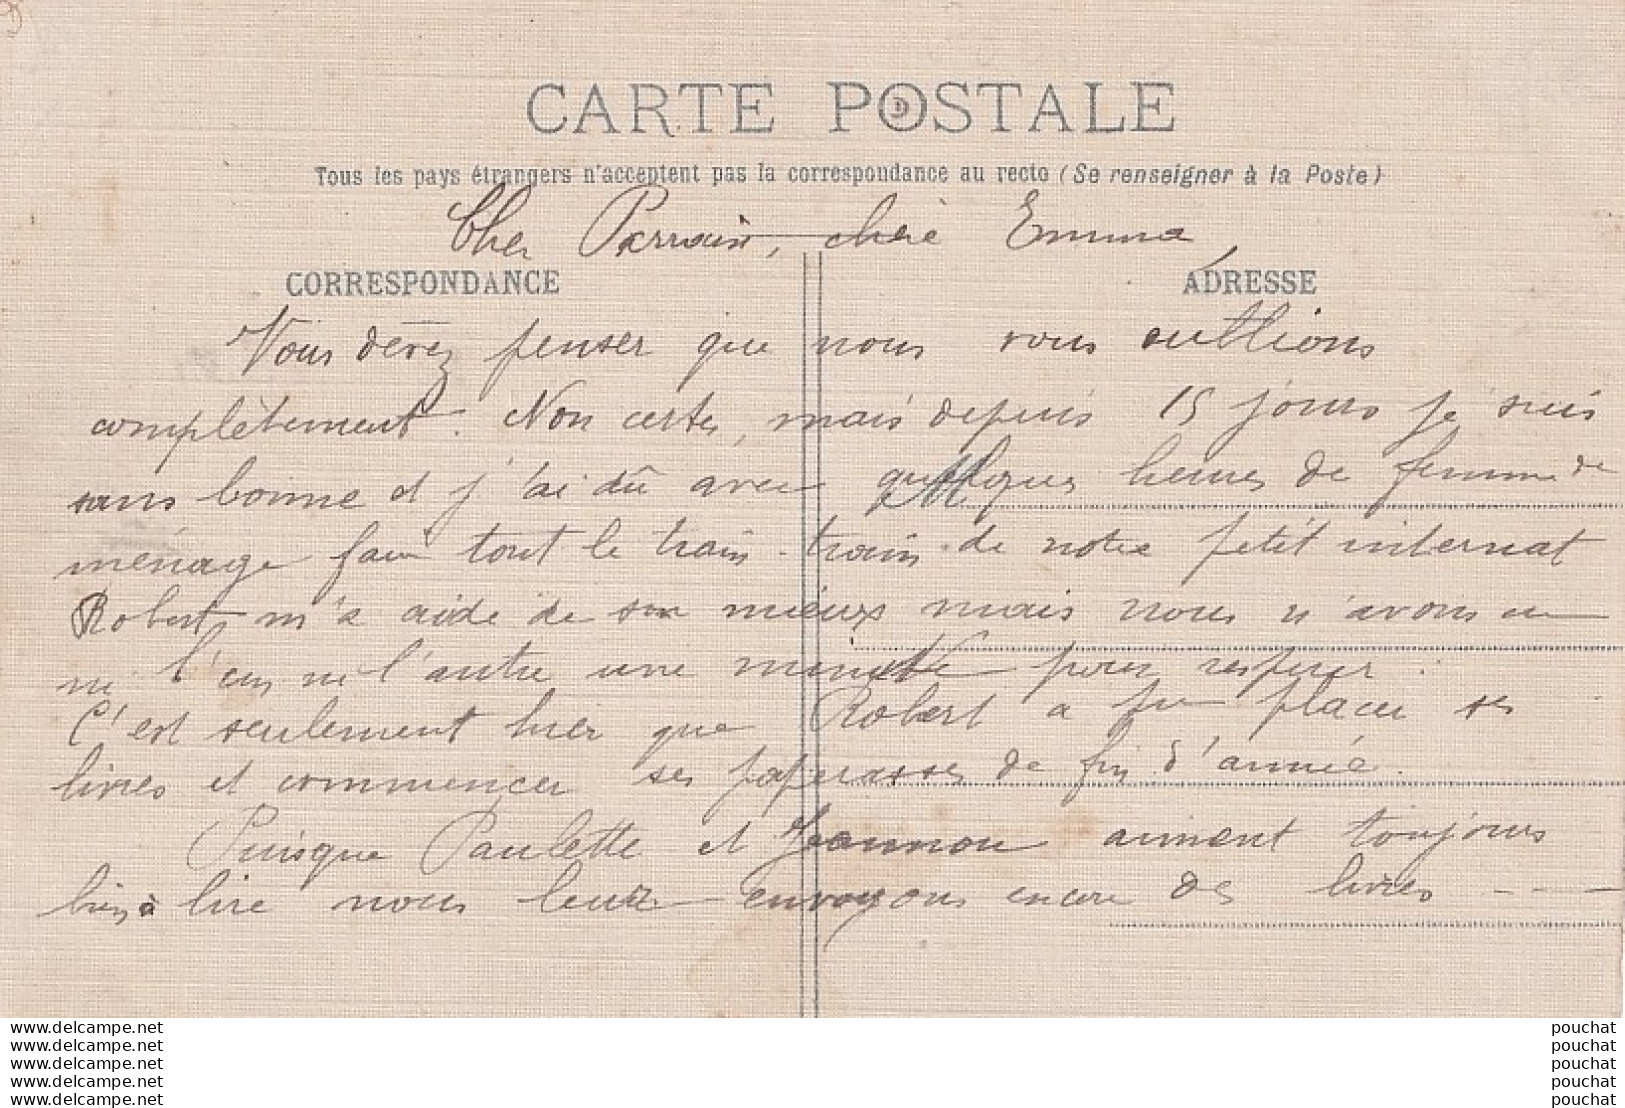 CARTE POSTALE
Tous les pays étrangers n'acceptent pas la correspondance au recto (Se renseigner à la Poste)
Cher Parrain, chère Emma,
CORRESPONDANCE
ADRESSE
Vous devez penser que nous vous oublions
complètement. Non certes, mais depuis 15 jours je suis
sans bonne et j'ai dû avec quelques heures de femme de
ménage faire tout le train-train de notre petit internat
Robert m'a aidé de son mieux mais nous n'avons eu
ni l'un ni l'autre une minute pour respirer.
C'est seulement hier que Robert a pu placer ses
livres et commencer ses paperasses de fin d'année.
Puisque Paulette et Jeannou aiment toujours
bien à lire nous leur envoyons encore des livres - - -
www.delcampe.net
www.delcampe.net
www.delcampe.net
www.delcampe.net
www.delcampe.net
pouchat
pouchat
pouchat
pouchat
pouchat